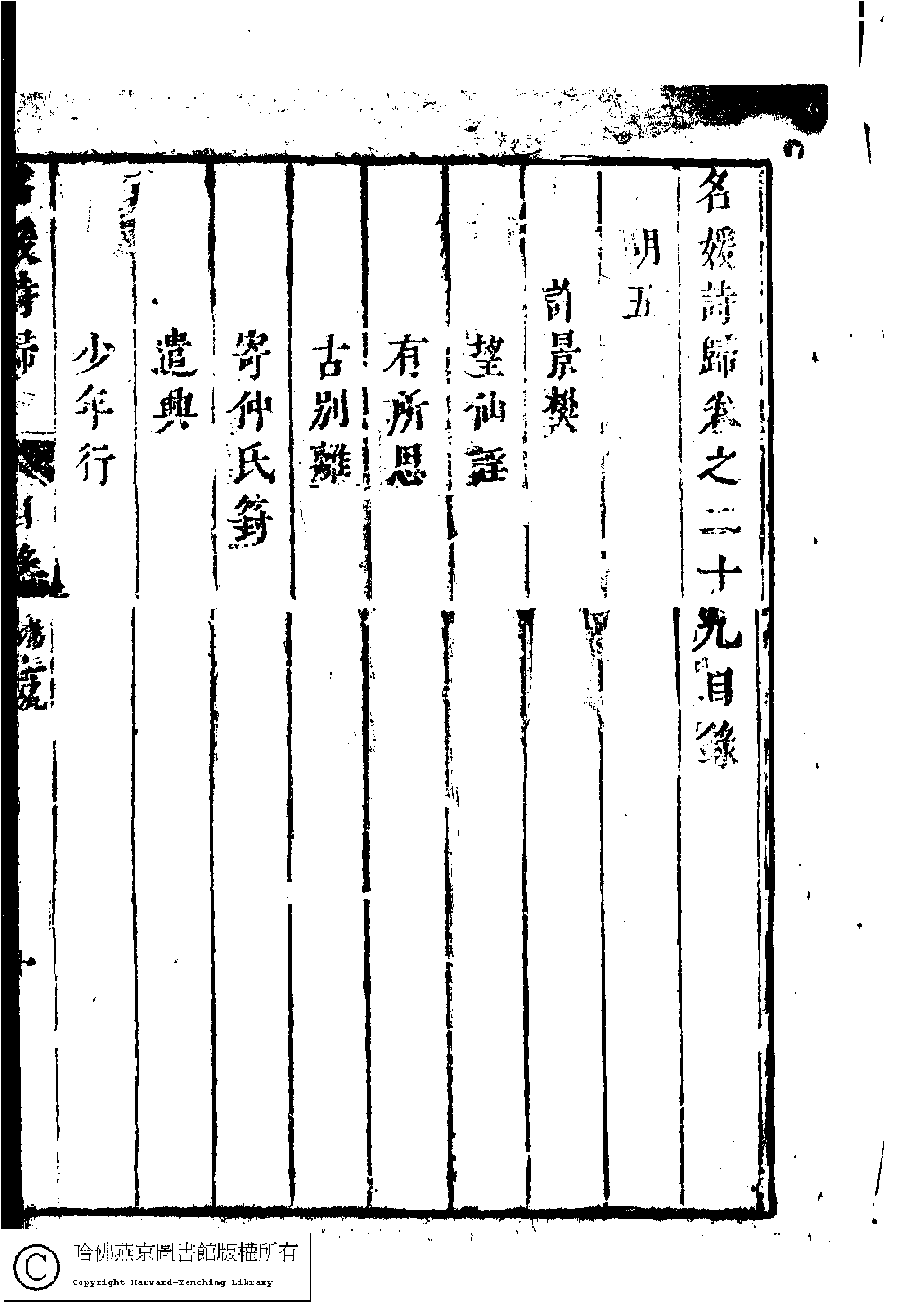 名媛詩歸卷之二十九目錄
明五
許景樊
望仙謡
有所思
古別離
寄仲氏篈
遣興
少年行
名媛詩歸
目錄
哈佛燕京圖書館版權所有
Copyright Harvard-Yenching Library